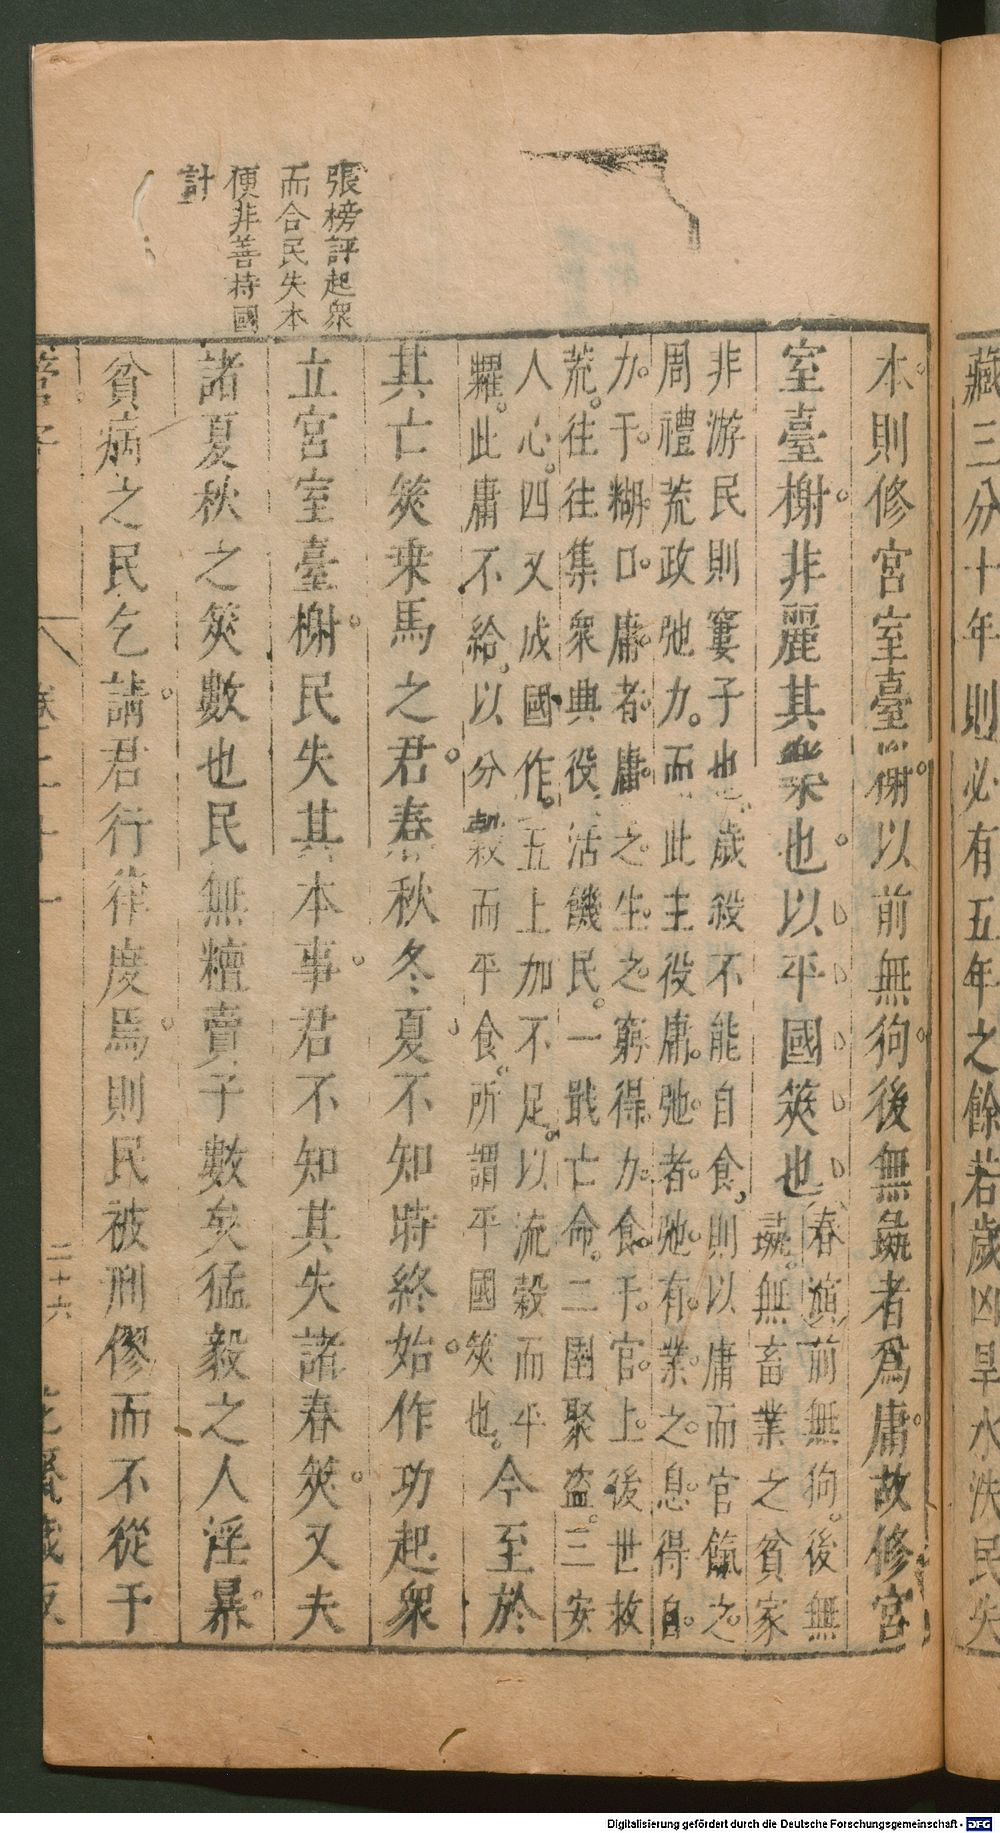 藏三分十年則必有五年之餘若歲凶旱水泆民失
張榜評起衆
而合民失本
便非善持國
計
本則修宮室臺榭以前無狗後無彘者爲庸故修宮
室臺榭非麗其樂也以平國筴也
春旗前無狗後無
彘無畜業之貧家
非游民則窶子也歲殺不能自食則以庸而官餼之
周禮荒政弛力而此主役庸弛者弛有業之息得自
力于糊口庸者庸之生之窮得力食于官上後世救
荒往往集衆典役活饑民一戢亡命二圉聚盜三安
人心四又成國作五上加不足以流穀而平
糶此庸不給以分穀而平食所謂平國筴也
今至於
其亡筴乘馬之君春秋冬夏不知時終始作功起衆
立宮室臺榭民失其本事君不知其失諸春筴又失
諸夏秋之筴數也民無𥼷賣子數矣猛毅之人淫暴
貧病之民乞請君行律度焉則民被刑僇而不從于
管子
卷二十一
二十六
花齋藏板
Digitalisierung gefördert durch die Deutsche Forschungsgemeinschaft - DFG